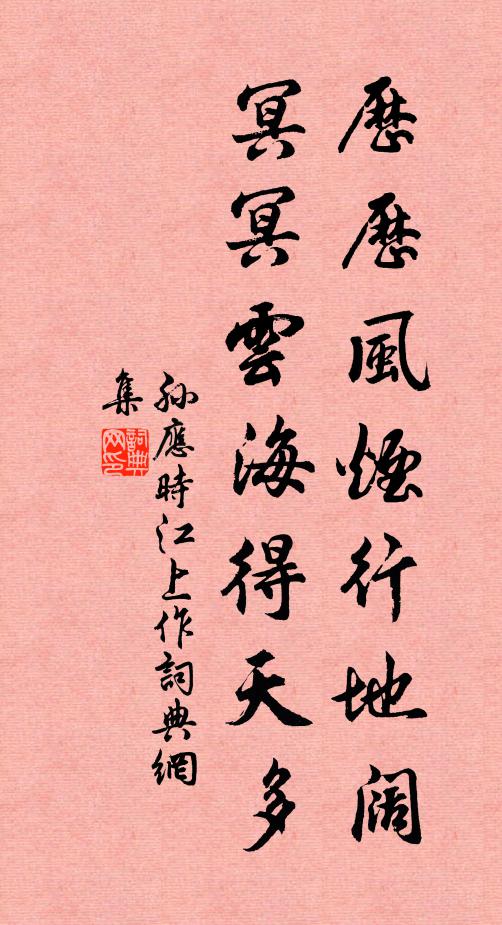 歷歷風煙行地闊
冥冥雲海得天多
孫應時江上作詞典網
集
詞典
网印